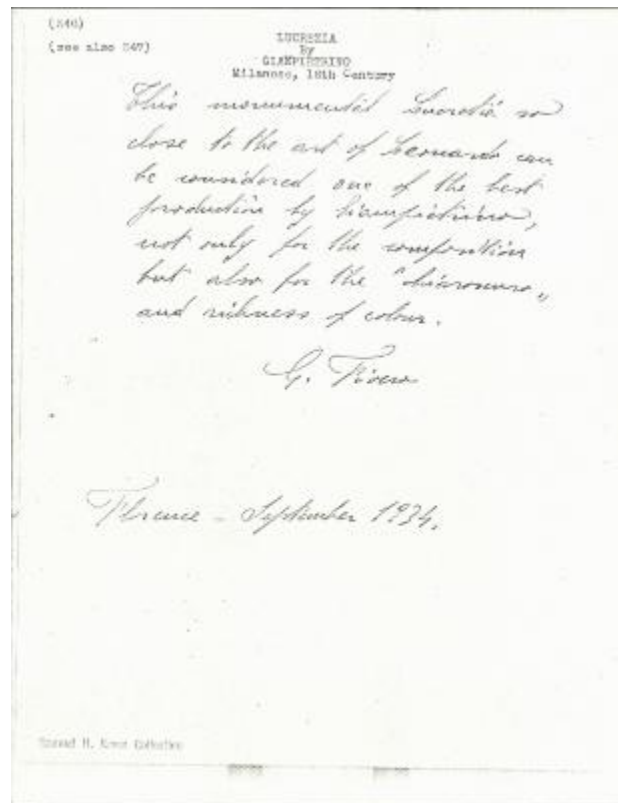 (346)
(see also 347)
LUCREZIA
By
GIANPIETRINO
Milanese, 16th Century
This monumental Lucretia so
close to the art of Leonardo can
be considered one of the best
production by Giampietrino,
not only for the composition
but also for the "chiaroscuro„
and richness of colour.
G. Fiocco
Florence - September 1934.
Samuel H. Kress Collection